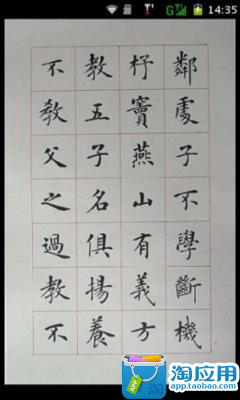 14:35
鄰處子不學斷機
杼竇燕山有義方
教五子名俱揚養
不教父之過教不
淘应用
app.taobao.com